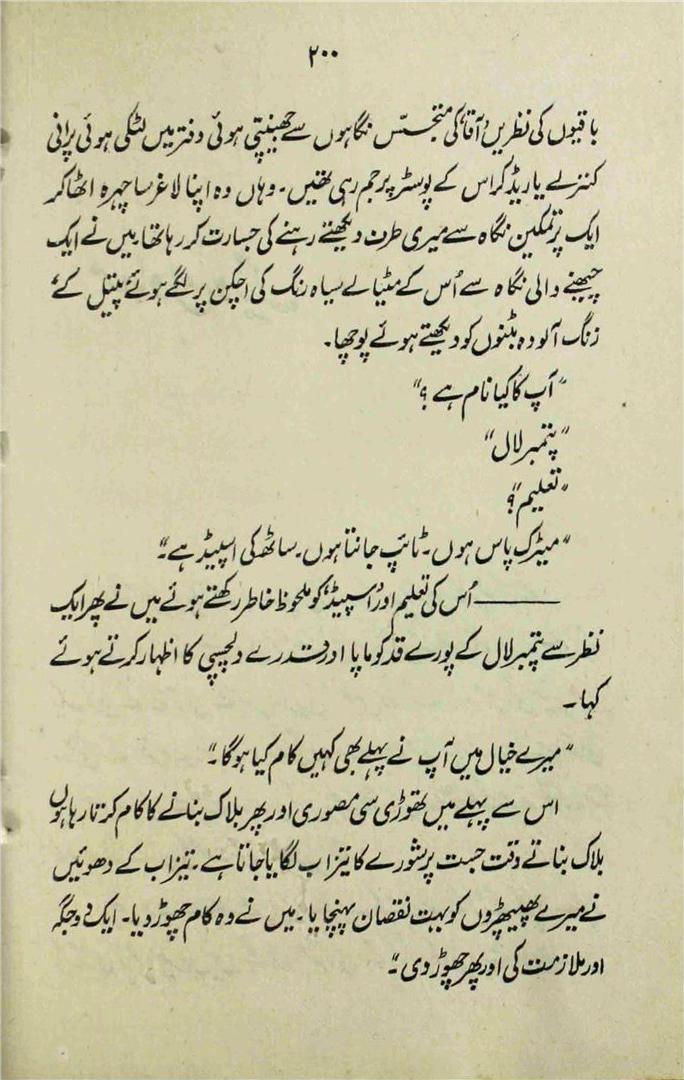 ۲۰۰
باقیوں کی نظریں 'آقا' کی متجسّس نگاہوں سے جھینپتی ہوئی دفتر میں لٹکی ہوئی پرانی
کنزرے یا ریڈ کراس کے پوسٹر پر جم رہی تھیں۔ وہاں وہ اپنا لاغر سا چہرہ اٹھا کر
ایک پرتمکین نگاہ سے میری طرف دیکھتے رہنے کی جسارت کر رہا تھا۔ میں نے ایک
چبھنے والی نگاہ سے اُس کے مٹیالے سیاہ رنگ کی اچکن پر لگے ہوئے پیتل کے
زنگ آلودہ بٹنوں کو دیکھتے ہوئے پوچھا۔
"آپ کا کیا نام ہے؟"
"پتمبر لال"
"تعلیم"؟
"میٹرک پاس ہوں۔ ٹائپ جانتا ہوں۔ ساٹھ کی اسپیڈ ہے۔"
——— اُس کی تعلیم اور 'اسپیڈ' کو ملحوظ خاطر رکھتے ہوئے میں نے پھر ایک
نظر سے پتمبر لال کے پورے قد کو ماپا اور قدرے دلچسپی کا اظہار کرتے ہوئے
کہا۔
"میرے خیال میں آپ نے پہلے بھی کہیں کام کیا ہوگا۔"
اس سے پہلے میں تھوڑی سی مصوری اور پھر بلاک بنانے کا کام کرتا رہا ہوں
بلاک بناتے وقت جست پر شورے کا تیزاب لگایا جاتا ہے۔ تیزاب کے دھوئیں
نے میرے پھیپھڑوں کو بہت نقصان پہنچایا۔ میں نے وہ کام چھوڑ دیا۔ ایک دو جگہ
اور ملازمت کی اور پھر چھوڑ دی۔"